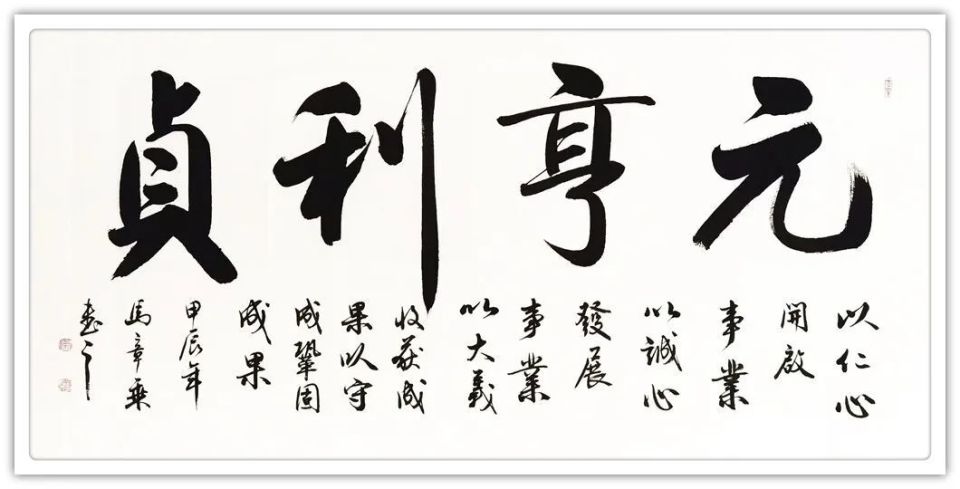 元亨利貞
以仁心
開啟
事業
以誠心
發展
事業
以大義
收获成
果以守
成鞏固
成果
甲辰年
馬章乘
書之